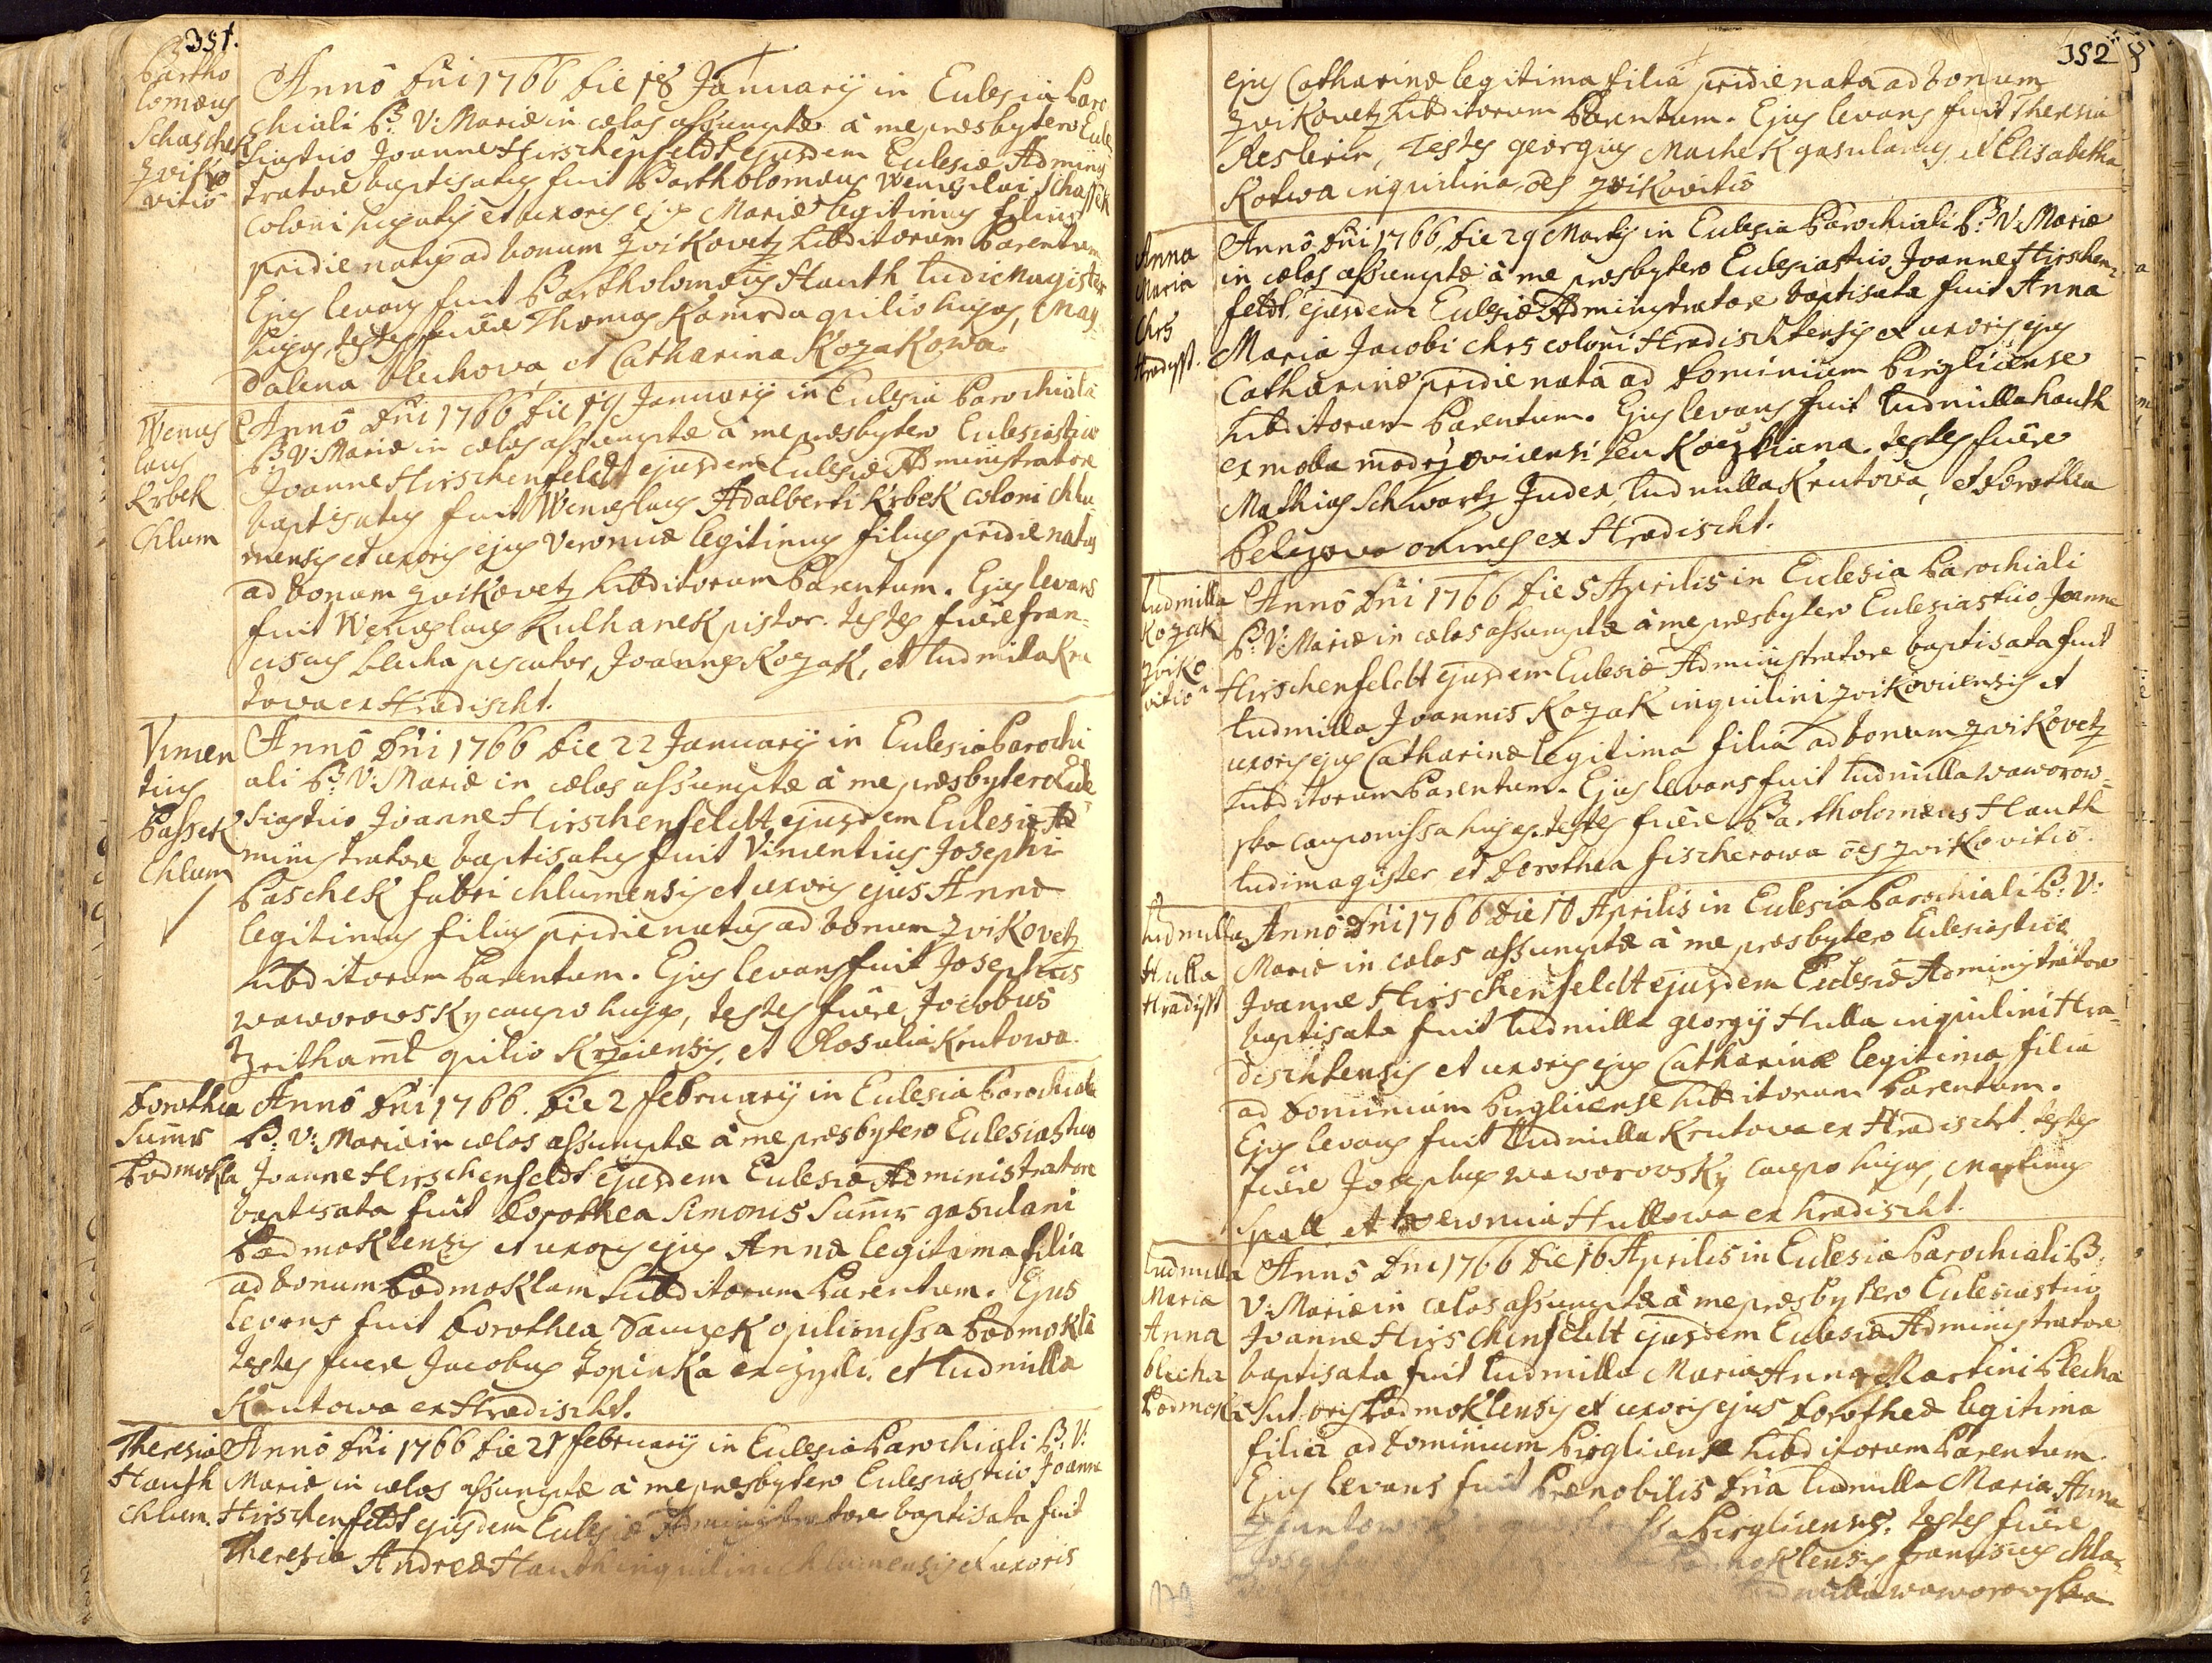 351.
Bartho
lomæus
Schaschek
Zviko
vitio
Anno Dni 1766 die 18 Januarij in Eclesia Paro
chiali B. V: Mariæ in cælos assumptæ à me præsbytero Ecle
siastico Joanne Hirschenfeldt ejusdem Eclesiæ Adminis
tratore baptisatus fuit Bartholomæus Wenceslai Schassek
coloni hujatis et uxoris ejus Mariæ legitimus filius
pridie natus ad bonum Zvikovetz subditorum Parentum
Ejus levans fuit Bartholomæus Hauth ludi Magister
hujas, testes fuêre Thomas Kamrda opilio hujas, Mag
dalena blechova, et Catharina Kozakowa.
Wences
laus
Krbek
Chlum
Anno Dni 1766 die 19 Januarij in Eclesia Parochiali
B. V: Mariæ in cælos assumptæ à me præsbytero Eclesiastico
Joanne Hirschenfeldt ejusdem Eclesiæ Administratore
baptisatus fuit Wenceslaus Adalberti Krbek coloni chlu
mensis et uxoris ejus Veronicæ legitimus filius pridie natus
ad bonum Zvikovetz subditorum Parentum. Ejus levans
fuit Wenceslaus Kulhanek pistor. testes fuêre fran=
ciscus blecha piscator, Joannes Kozak, et Ludmila Kru
towa ex Hradischt.
Vincen
tius
Passek
Chlum
Anno Dni 1766 Die 22 Januarij in Eclesia Parochi
ali B. V: Mariæ in cælos assumptæ à me præsbytero Ecle
siastico Joanne Hirschenfeldt ejusdem Eclesiæ Ad
ministratore baptisatus fuit Vincentius Josephi
Paschek fabri chlumensis et uxoris ejus Annæ
legitimus filius pridie natus ad bonum Zvikovetz
subditorum Parentum. Ejus levans fuit Josephus
waworowsky caupo hujas, testes fuêre Jocobus
opilio et Rosalia Krutowa.
Dorothea
Podmokla
Anno Dni 1766. Die 2 februarij in Eclesia Parochiali
B: V: Mariæ in cælos assumptæ à me præsbytero Eclesiastico
Joanne Hirschenfeldt ejusdem Eclesiæ Administratore
baptisata fuit Dorothea Simonis gasulani
Podmoklensis et uxoris ejus Annæ legitima filia
ad bonum Podmoklam subditorum Parentum. Ejus
levans fuit Dorothea opilionissa Podmoklâ
testes fuere Jacobus Topinka et Ludmilla
Krutowa ex Hradischt.
Theresia
Hauth
Chlum.
Anno Dni 1766 Die 21 februarij in Eclesia Parochiali B: V:
Mariæ in cælos assumptæ à me præsbytero Eclesiastico Joanne
Hirschenfeldt ejusdem Eclesiæ Administratore baptisata fuit
Theresia Andreæ Hauth inquilini chlumensis et uxoris
352
ejus Catharinæ legitima filia pridie nata ad bonum
Zvikovetz subditorum Parentum. Ejus levans fuit Theresia
Reslerin, Testes georgius Machek gasulanus, et Elisabetha
Kotwa inquilina, oes Zvikovitio
Anna
Maria
Chrs
Hradisst.
Anno Dni 1766 Die 29 Martij in Eclesia Parochiali B. V: Mariæ
in cælos assumptæ à me præsbytero Eclesiastico Joanne Hirschen=
feldt ejusdem Eclesiæ Administratore baptisata fuit Anna
Maria Jacobi chrs coloni Hradischtensis et uxoris ejus
Catharinæ pridie nata ad Dominium Pirglicense
subditorum Parentum. Ejus levans fuit Ludmilla hauth
ex mola seu testes fuêre
Mathias Schwartz Judex, Ludmilla Krutova, et Dorothea
Pelizova omnes ex Hradischt.
Ludmilla
Kozak
Zviko
vitio
Anno Dni 1766 Die 5 Aprilis in Eclesia Parochiali
B. V: Mariæ in cælos assumptæ à me præsbytero Eclesiastico Joanne
Hirschenfeldt ejusdem Eclesiæ Administratore baptisata fuit
Ludmilla Joannis Kozak inquilini Zvikovicensis et
uxoris ejus Catharinæ legitima filia ad bonum Zvikovetz
subditorum Parentum. Ejus levans fuit Ludmilla waworow=
ska cauponissa hujas, testes fuêre Bartholomæus Hauth
ludimagister et Dorothea fischerowa oes Zvikovitio.
Ludmilla
Hulla
Hradisst
Anno Dni 1766 Die 10 Aprilis in Eclesia Parochiali B: V:
Mariæ in cælos assumptæ à me præsbytero Eclesiastico
Joanne Hirschenfeldt ejusdem Eclesiæ Administratore
baptisata fuit Ludmilla georgij Hulla inquilini Hra=
dischtensis et uxoris ejus Catharinæ legitima filia
ad Dominium Pirglicense subditorum Parentum.
Ejus levans fuit Ludmilla Krutowa ex Hradischt. testes
fuêre Josephus waworovsky caupo hujas, Martinus
Spall et Hullowa ex hradischt.
Ludmilla
Maria
Anna
blecha
Podmokl
Anno Dni 1766 Die 16 Aprilis in Eclesia Parochiali B.
V: Mariæ in cælos assumptæ à me præsbytero Eclesiastico
Joanne Hirschenfeldt ejusdem Eclesiæ Administratore
baptisata fuit Ludmilla Maria Anna Martini Blecha
Sutoris Podmoklensis et uxoris ejus Dorotheæ legitima
filia ad Dominium Pirglicense subditorum Parentum
Ejus levans fuit Prænobilis Dna Ludmilla Maria Anna
Pirglicensis. testes fuêre
Podmoklensis franciscus
Ludmilla waworowska
179